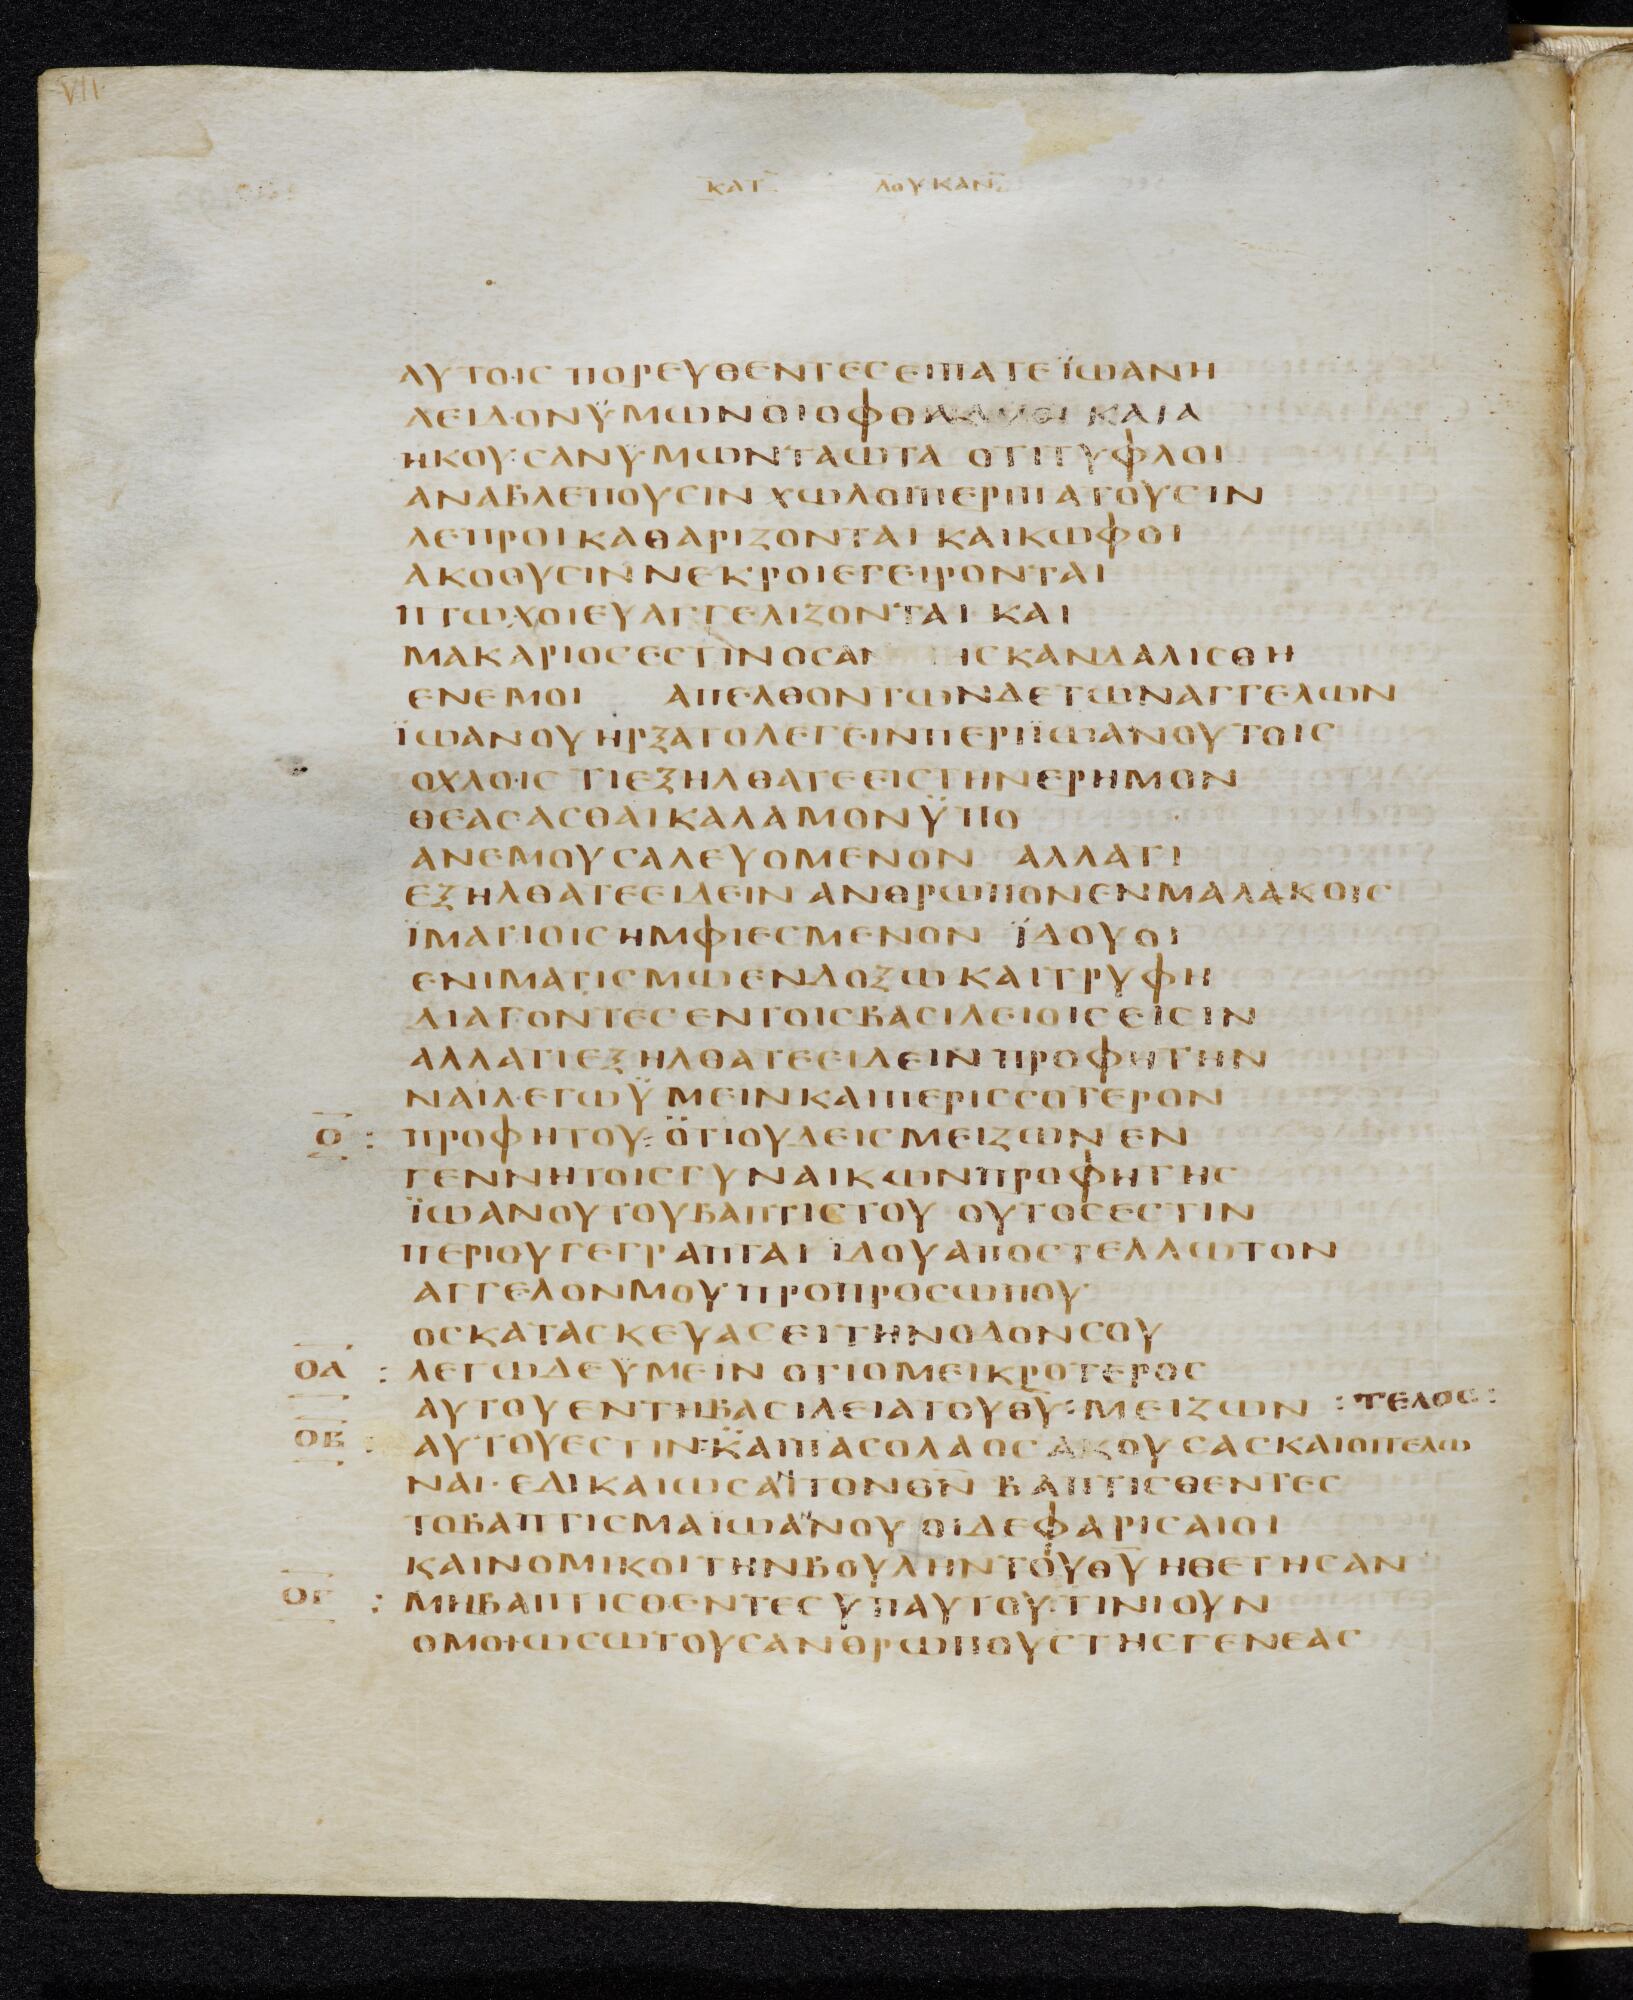 VII
ΚΑΤ ΛΟΥΚΑΝ
ΑΥΤΟΙC ΠΟΡΕΥΘΕΝΤΕC ΕΙΠΑΤΕ ΪΩΑΝΗ
ΑΕΙΔΟΝ ΫΜΩΝ ΟΙ ΟΦΘΑΛΜΟΙ ΚΑΙ Α
ΗΚΟΥCΑΝ ΥΜΩΝ ΤΑ ΩΤΑ ΟΤΙ ΤΥΦΛΟΙ
ΑΝΑΒΛΕΠΟΥCΙΝ ΧΩΛΟΙ ΠΕΡΙΠΑΤΟΥCΙΝ
ΛΕΠΡΟΙ ΚΑΘΑΡΙΖΟΝΤΑΙ ΚΑΙ ΚΩΦΟΙ
ΑΚΟΟΥCΙΝ ΝΕΚΡΟΙ ΕΓΕΙΡΟΝΤΑΙ
ΠΤΩΧΟΙ ΕΥΑΓΓΕΛΙΖΟΝΤΑΙ ΚΑΙ
ΜΑΚΑΡΙΟC ΕCΤΙΝ ΟC ΑΝ ΗCΚΑΝΔΑΛΙCΘΗ
ΕΝ ΕΜΟΙ ΑΠΕΛΘΟΝΤΩΝ ΔΕ ΤΩΝ ΑΓΓΕΛΩΝ
ΪΩΑΝΟΥ ΗΡΞΑΤΟ ΛΕΓΕΙΝ ΠΕΡΙ ΪΩΑΝΟΥ ΤΟΙC
ΟΧΛΟΙC ΤΙ ΕΞΗΛΘΑΤΕ ΕΙC ΤΗΝ ΕΡΗΜΟΝ
ΘΕΑCΑCΘΑΙ ΚΑΛΑΜΟΝ ΫΠΟ
ΑΝΕΜΟΥ CΑΛΕΥΟΜΕΝΟΝ ΑΛΛΑ ΤΙ
ΕΞΗΛΘΑΤΕ ΕΙΔΕΙΝ ΑΝΘΡΩΠΟΝ ΕΝ ΜΑΛΑΚΟΙC
ΪΜΑΤΙΟΙC ΗΜΦΙΕCΜΕΝΟΝ ΪΔΟΥ ΟΙ
ΕΝ ΙΜΑΤΙCΜΩ ΕΝΔΟΞΩ ΚΑΙ ΤΡΥΦΗ
ΔΙΑΓΟΝΤΕC ΕΝ ΤΟΙC ΒΑCΙΛΕΙΟΙC ΕΙCΙΝ
ΑΛΛΑ ΤΙ ΕΞΗΛΘΑΤΕ ΕΙΔΕΙΝ ΠΡΟΦΗΤΗΝ
ΝΑΙ ΛΕΓΩ ΫΜΕΙΝ ΚΑΙ ΠΕΡΙCCΟΤΕΡΟΝ
Ο : ΠΡΟΦΗΤΟΥ : ΟΤΙ ΟΥΔΕΙC ΜΕΙΖΩΝ ΕΝ
ΓΕΝΝΗΤΟΙC ΓΥΝΑΙΚΩΝ ΠΡΟΦΗΤΗC
ΪΩΑΝΟΥ ΤΟΥ ΒΑΠΤΙCΤΟΥ ΟΥΤΟC ΕCΤΙΝ
ΠΕΡΙ ΟΥ ΓΕΓΡΑΠΤΑΙ ΙΔΟΥ ΑΠΟCΤΕΛΛΩ ΤΟΝ
ΑΓΓΕΛΟΝ ΜΟΥ ΠΡΟ ΠΡΟCΩΠΟΥ
ΟC ΚΑΤΑCΚΕΥΑCΕΙ ΤΗΝ ΟΔΟΝ CΟΥ
ΟΑ : ΛΕΓΩ ΔΕ ΫΜΕΙΝ ΟΤΙ Ο ΜΕΙΚΡΟΤΕΡΟC
ΑΥΤΟΥ ΕΝ ΤΗ ΒΑCΙΛΕΙΑ ΤΟΥ ΘΥ : ΜΕΙΖΩΝ : ΤΕΛΟC :
ΟΒ : ΑΥΤΟΥ ΕCΤΙΝ : ΚΑΙ ΠΑC Ο ΛΑΟC ΑΚΟΥCΑC ΚΑΙ ΟΙ ΤΕΛΩ
ΝΑΙ · ΕΔΙΚΑΙΩCΑΝ ΤΟΝ ΘΝ ΒΑΠΤΙCΘΕΝΤΕC
ΤΟ ΒΑΠΤΙCΜΑ ΪΩΑΝΝΟΥ ΟΙ ΔΕ ΦΑΡΙCΑΙΟΙ
ΚΑΙ ΝΟΜΙΚΟΙ ΤΗΝ ΒΟΥΛΗΝ ΤΟΥ ΘΥ ΗΘΕΤΗCΑΝ
ΟΓ : ΜΗ ΒΑΠΤΙCΘΕΝΤΕC ΥΠ ΑΥΤΟΥ· ΤΙΝΙ ΟΥΝ
ΟΜΟΙΩCΩ ΤΟΥC ΑΝΘΡΩΠΟΥC ΤΗC ΓΕΝΕΑC